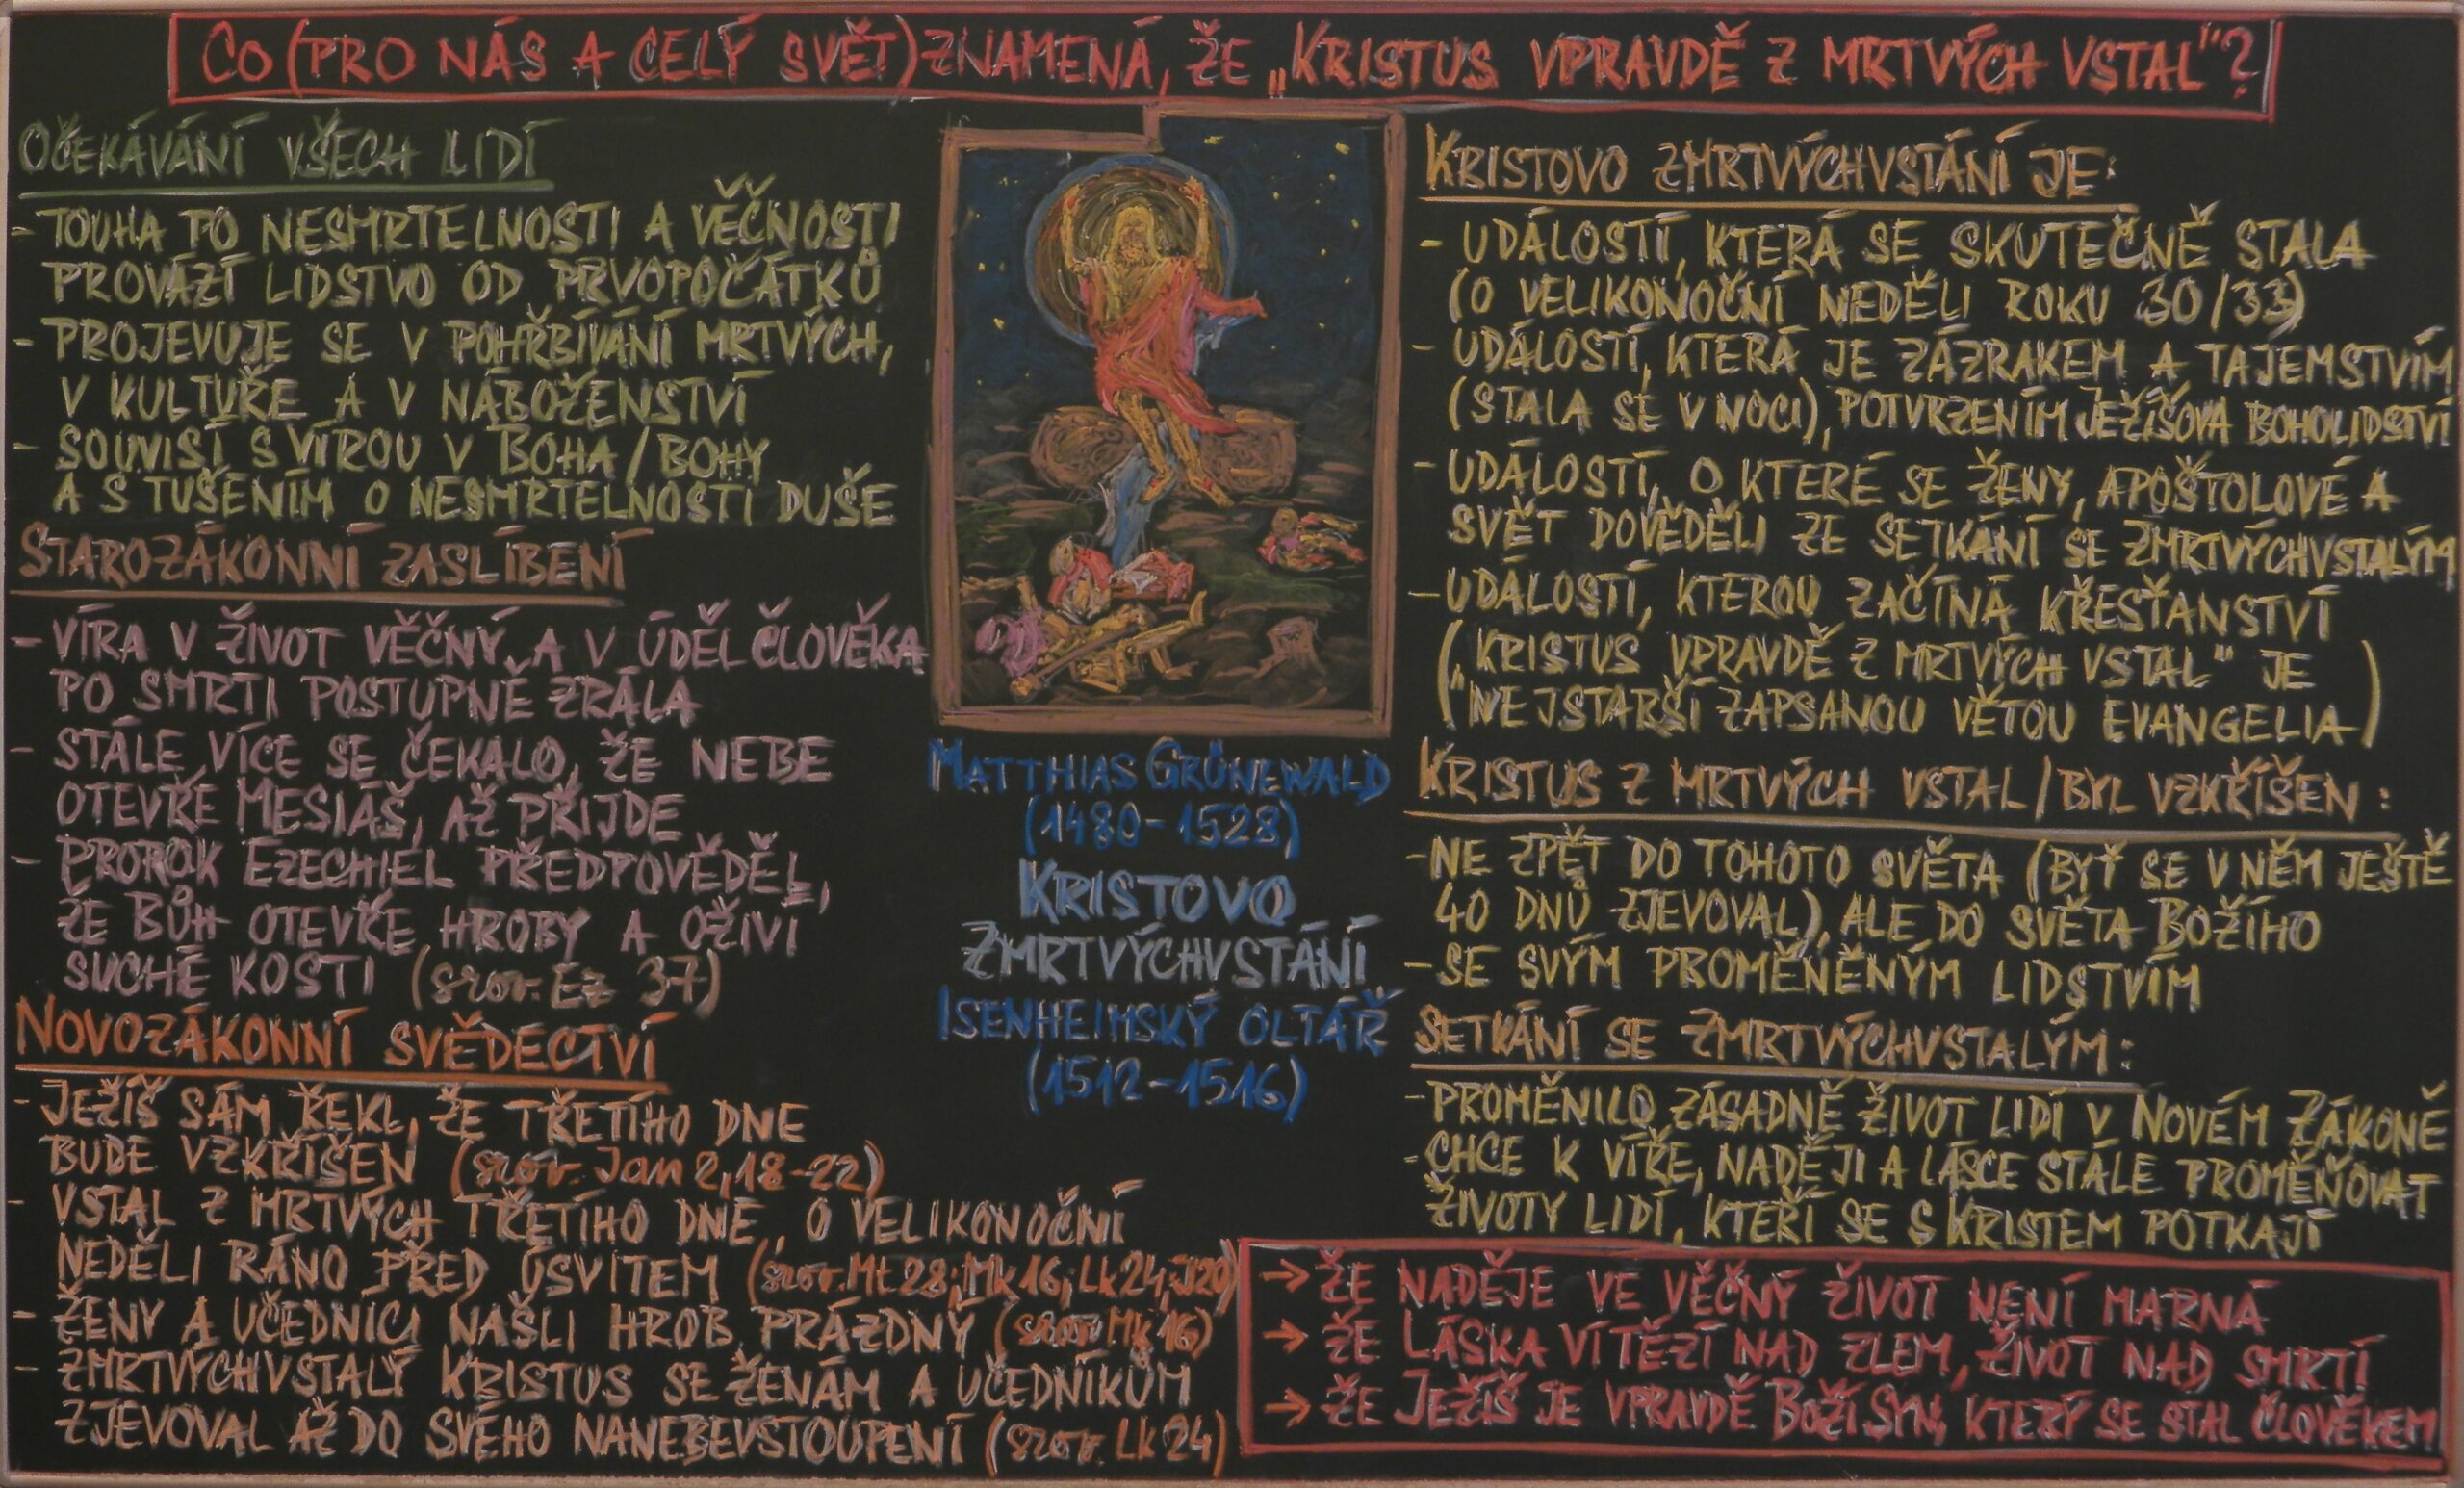 CO (PRO NÁS A CELÝ SVĚT) ZNAMENÁ, ŽE „KRISTUS VPRAVDĚ Z MRTVÝCH VSTAL"?
OČEKÁVÁNÍ VŠECH LIDÍ
- TOUHA PO NESMRTELNOSTI A VĚČNOSTI
PROVÁZÍ LIDSTVO OD PRVOPOČÁTKŮ
- PROJEVUJE SE V POHŘBÍVÁNÍ MRTVÝCH,
V KULTUŘE A V NÁBOŽENSTVÍ
- SOUVISÍ S VÍROU V BOHA/BOHY
A S TUŠENÍM O NESMRTELNOSTI DUŠE
STAROZÁKONNÍ ZASLÍBENÍ
- VÍRA V ŽIVOT VĚČNÝ A V ÚDĚL ČLOVĚKA
PO SMRTI POSTUPNĚ ZRÁLA
- STÁLE VÍCE SE ČEKALO, ŽE NEBE
OTEVŘE MESIÁŠ, AŽ PŘIJDE
- PROROK EZECHIEL PŘEDPOVĚDĚL,
ŽE BŮH OTEVŘE HROBY A OŽIVÍ
SUCHÉ KOSTI (srov. Ez 37)
NOVOZÁKONNÍ SVĚDECTVÍ
- JEŽÍŠ SÁM ŘEKL, ŽE TŘETÍHO DNE
BUDE VZKŘÍŠEN (srov. Jan 2,18-22)
- VSTAL Z MRTVÝCH TŘETÍHO DNE, O VELIKONOČNÍ
NEDĚLI RÁNO PŘED ÚSVITEM (srov. Mt 28; Mk 16; Lk 24; J20)
- ŽENY A UČEDNÍCI NAŠLI HROB PRÁZDNÝ (srov. Mk 16)
- ZMRTVÝCHVSTALÝ KRISTUS SE ŽENÁM A UČEDNÍKŮM
ZJEVOVAL AŽ DO SVÉHO NANEBEVSTOUPENÍ (srov. Lk 24)
MATTHIAS GRÜNEWALD
(1480-1528)
KRISTOVO
ZMRTVÝCHVSTÁNÍ
ISENHEIMSKÝ OLTÁŘ
(1512-1516)
KRISTOVO ZMRTVÝCHVSTÁNÍ JE:
- UDÁLOSTÍ, KTERÁ SE SKUTEČNĚ STALA
(O VELIKONOČNÍ NEDĚLI ROKU 30/33)
- UDÁLOSTÍ, KTERÁ JE ZÁZRAKEM A TAJEMSTVÍM
(STALA SE V NOCI), POTVRZENÍM JEŽÍŠOVA BOHOLIDSTVÍ
- UDÁLOSTÍ, O KTERÉ SE ŽENY, APOŠTOLOVÉ A
SVĚT DOVĚDĚLI ZE SETKÁNÍ SE ZMRTVÝCHVSTALÝM
- UDÁLOSTÍ, KTEROU ZAČÍNÁ KŘESŤANSTVÍ
(„KRISTUS VPRAVDĚ Z MRTVÝCH VSTAL" JE
NEJSTARŠÍ ZAPSANOU VĚTOU EVANGELIA)
KRISTUS Z MRTVÝCH VSTAL/BYL VZKŘÍŠEN:
- NE ZPĚT DO TOHOTO SVĚTA (BYŤ SE V NĚM JEŠTĚ
40 DNŮ ZJEVOVAL), ALE DO SVĚTA BOŽÍHO
- SE SVÝM PROMĚNĚNÝM LIDSTVÍM
SETKÁNÍ SE ZMRTVÝCHVSTALÝM:
- PROMĚNILO ZÁSADNĚ ŽIVOT LIDÍ V NOVÉM ZÁKONĚ
- CHCE K VÍŘE, NADĚJI A LÁSCE STÁLE PROMĚŇOVAT
ŽIVOTY LIDÍ, KTEŘÍ SE S KRISTEM POTKAJÍ
→ ŽE NADĚJE VE VĚČNÝ ŽIVOT NENÍ MARNÁ
→ ŽE LÁSKA VÍTĚZÍ NAD ZLEM, ŽIVOT NAD SMRTÍ
→ ŽE JEŽÍŠ JE VPRAVDĚ BOŽÍ SYN, KTERÝ SE STAL ČLOVĚKEM